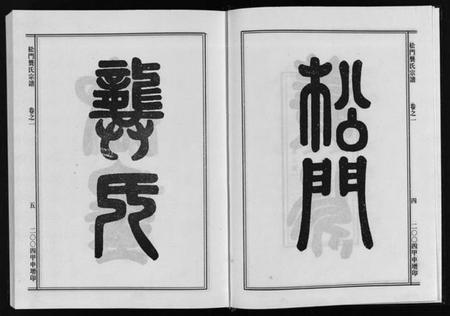 松門龔氏宗譜 卷之一
四 二〇〇四甲申增印
松門
龔氏
松門龔氏宗譜 卷之一
五 二〇〇四甲申增印